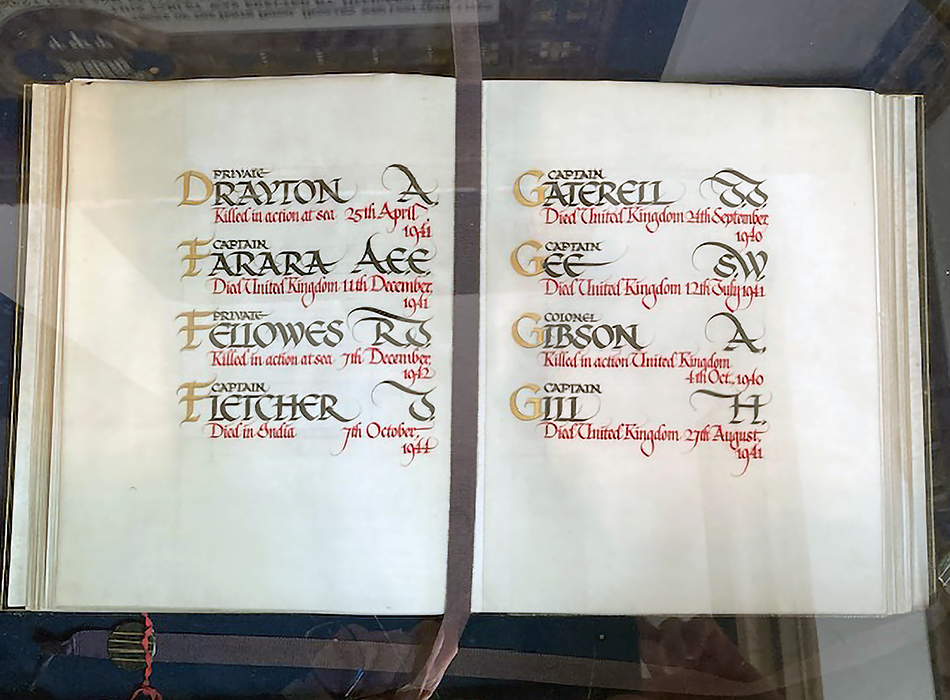 PRIVATE
DRAYTON A.
Killed in action at sea 25th April,
1941
CAPTAIN
FARARA A.E.E.
Died United Kingdom 11th December,
1941
PRIVATE
FELLOWES R.J.
Killed in action at sea 7th December,
1942
CAPTAIN
FLETCHER J.
Died in India 7th October,
1944
CAPTAIN
GATERELL J.J.
Died United Kingdom 24th September,
1940
CAPTAIN
GEE S.W.
Died United Kingdom 12th July 1941
COLONEL
GIBSON A.
Killed in action United Kingdom
4th Oct., 1940
CAPTAIN
GILL H.
Died United Kingdom 27th August,
1941